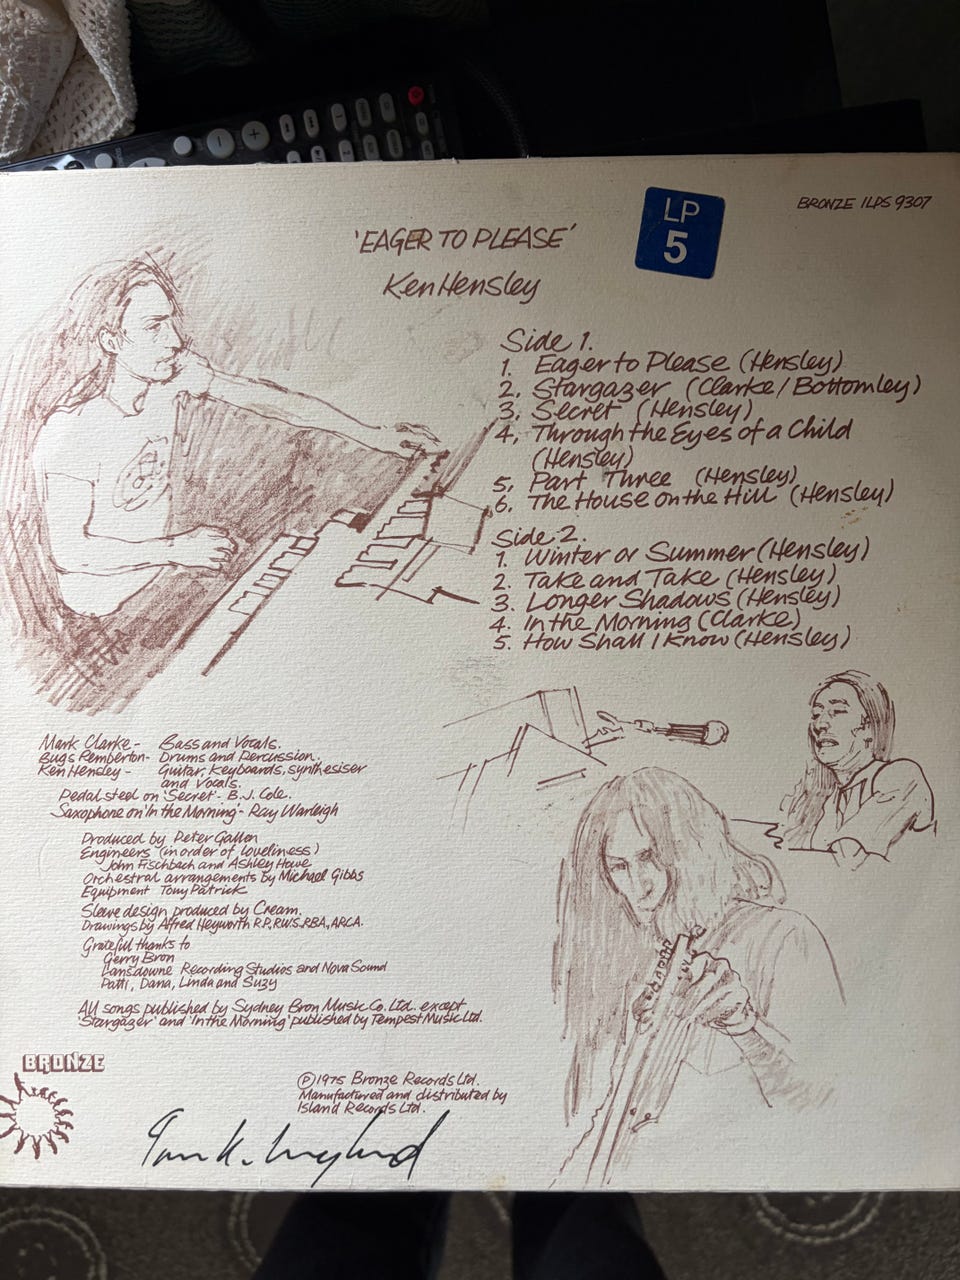 BRONZE ILPS 9307
LP
5
'EAGER TO PLEASE'
Ken Hensley
Side 1.
1. Eager to Please (Hensley)
2. Stargazer (Clarke/Bottomley)
3. Secret (Hensley)
4. Through the Eyes of a Child
(Hensley)
5. Part Three (Hensley)
6. The House on the Hill (Hensley)
Side 2.
1. Winter or Summer (Hensley)
2. Take and Take (Hensley)
3. Longer Shadows (Hensley)
4. In the Morning (Clarke)
5. How Shall I Know (Hensley)
Mark Clarke - Bass and Vocals.
Bugs Pemberton - Drums and Percussion.
Ken Hensley - Guitar, Keyboards, synthesiser
and Vocals.
Pedal steel on 'Secret' - B.J. Cole.
Saxophone on 'In the Morning' - Ray Warleigh
Produced by Peter Gallen
Engineers (in order of loveliness)
John Fischbach and Ashley Howe
Orchestral arrangements by Michael Gibbs
Equipment Tony Patrick
Sleeve design produced by Cream.
Drawings by Alfred Heyworth R.P., R.W.S., R.B.A., A.R.C.A.
Grateful thanks to
Gerry Bron
Lansdowne Recording Studios and Nova Sound
Patti, Dana, Linda and Suzy
All songs published by Sydney Bron Music Co. Ltd. except
'Stargazer' and 'In the Morning' published by Tempest Music Ltd.
BRONZE
Ⓟ 1975 Bronze Records Ltd.
Manufactured and distributed by
Island Records Ltd.